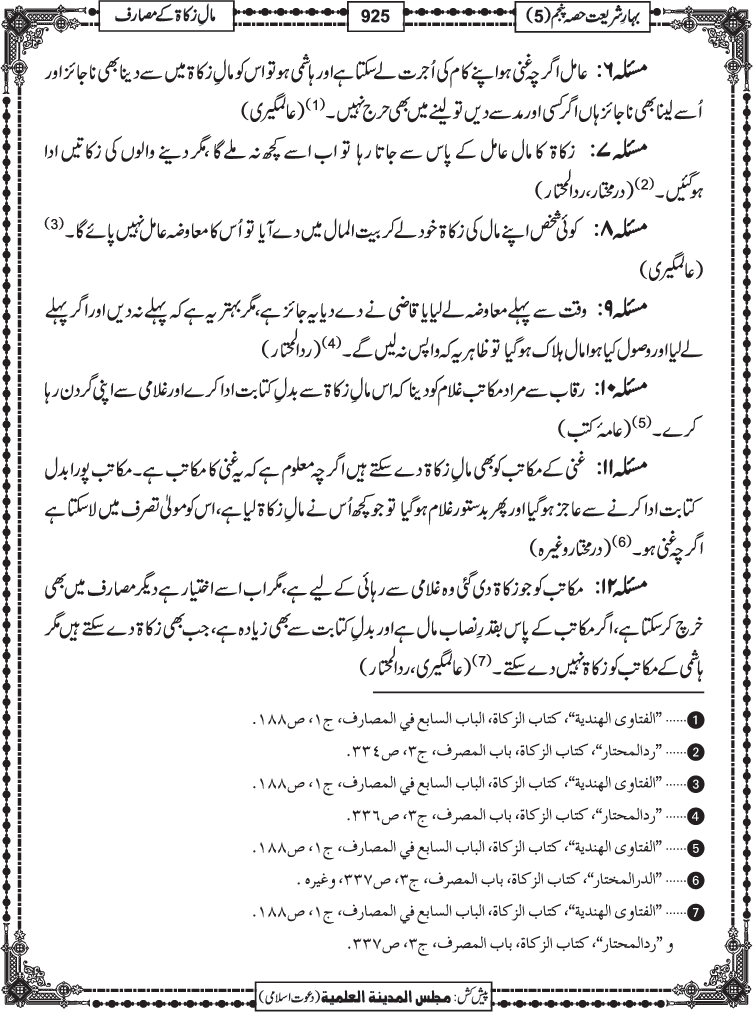 بہارِ شریعت حصہ پنجم (5)
925
مالِ زکاۃ کے مصارف
مسئلہ ۶: عامل اگرچہ غنی ہو اپنے کام کی اُجرت لے سکتا ہے اور ہاشمی ہو تو اس کو مالِ زکاۃ میں سے دینا بھی ناجائز اور
اُسے لینا بھی ناجائز ہاں اگر کسی اور مد سے دیں تو لینے میں بھی حرج نہیں۔ (1) (عالمگیری)
مسئلہ ۷: زکاۃ کا مال عامل کے پاس سے جاتا رہا تو اب اسے کچھ نہ ملے گا، مگر دینے والوں کی زکاتیں ادا
ہوگئیں۔ (2) (درمختار، ردالمحتار)
مسئلہ ۸: کوئی شخص اپنے مال کی زکاۃ خود لے کر بیت المال میں دے آیا تو اُس کا معاوضہ عامل نہیں پائے گا۔ (3)
(عالمگیری)
مسئلہ ۹: وقت سے پہلے معاوضہ لے لیا یا قاضی نے دے دیا یہ جائز ہے، مگر بہتر یہ ہے کہ پہلے نہ دیں اور اگر پہلے
لے لیا اور وصول کیا ہوا مال ہلاک ہوگیا تو ظاہر یہ کہ واپس نہ لیں گے۔ (4) (ردالمحتار)
مسئلہ ۱۰: رقاب سے مراد مکاتب غلام کو دینا کہ اس مالِ زکاۃ سے بدلِ کتابت ادا کرے اور غلامی سے اپنی گردن رہا
کرے۔ (5) (عامۂ کتب)
مسئلہ ۱۱: غنی کے مکاتب کو بھی مالِ زکاۃ دے سکتے ہیں اگرچہ معلوم ہے کہ یہ غنی کا مکاتب ہے۔ مکاتب پورا بدل
کتابت ادا کرنے سے عاجز ہوگیا اور پھر بدستور غلام ہوگیا تو جو کچھ اُس نے مالِ زکاۃ لیا ہے، اس کو مولیٰ تصرف میں لاسکتا ہے
اگرچہ غنی ہو۔ (6) (درمختار وغیرہ)
مسئلہ ۱۲: مکاتب کو جو زکاۃ دی گئی وہ غلامی سے رہائی کے لیے ہے، مگر اب اسے اختیار ہے دیگر مصارف میں بھی
خرچ کرسکتا ہے، اگر مکاتب کے پاس بقدرِ نصاب مال ہے اور بدلِ کتابت سے بھی زیادہ ہے، جب بھی زکاۃ دے سکتے ہیں مگر
ہاشمی کے مکاتب کو زکاۃ نہیں دے سکتے۔ (7) (عالمگیری، ردالمحتار)
1 ...... ”الفتاوى الهندية“، كتاب الزكاة، الباب السابع في المصارف، ج١، ص١٨٨.
2 ...... ”ردالمحتار“، كتاب الزكاة، باب المصرف، ج٣، ص٣٣٤.
3 ...... ”الفتاوى الهندية“، كتاب الزكاة، الباب السابع في المصارف، ج١، ص١٨٨.
4 ...... ”ردالمحتار“، كتاب الزكاة، باب المصرف، ج٣، ص٣٣٦.
5 ...... ”الفتاوى الهندية“، كتاب الزكاة، الباب السابع في المصارف، ج١، ص١٨٨.
6 ...... ”الدرالمختار“، كتاب الزكاة، باب المصرف، ج٣، ص٣٣٧، وغيره .
7 ...... ”الفتاوى الهندية“، كتاب الزكاة، الباب السابع في المصارف، ج١، ص١٨٨.
و ”ردالمحتار“، كتاب الزكاة، باب المصرف، ج٣، ص٣٣٧.
پیش کش: مجلس المدينة العلمية (دعوت اسلامی)